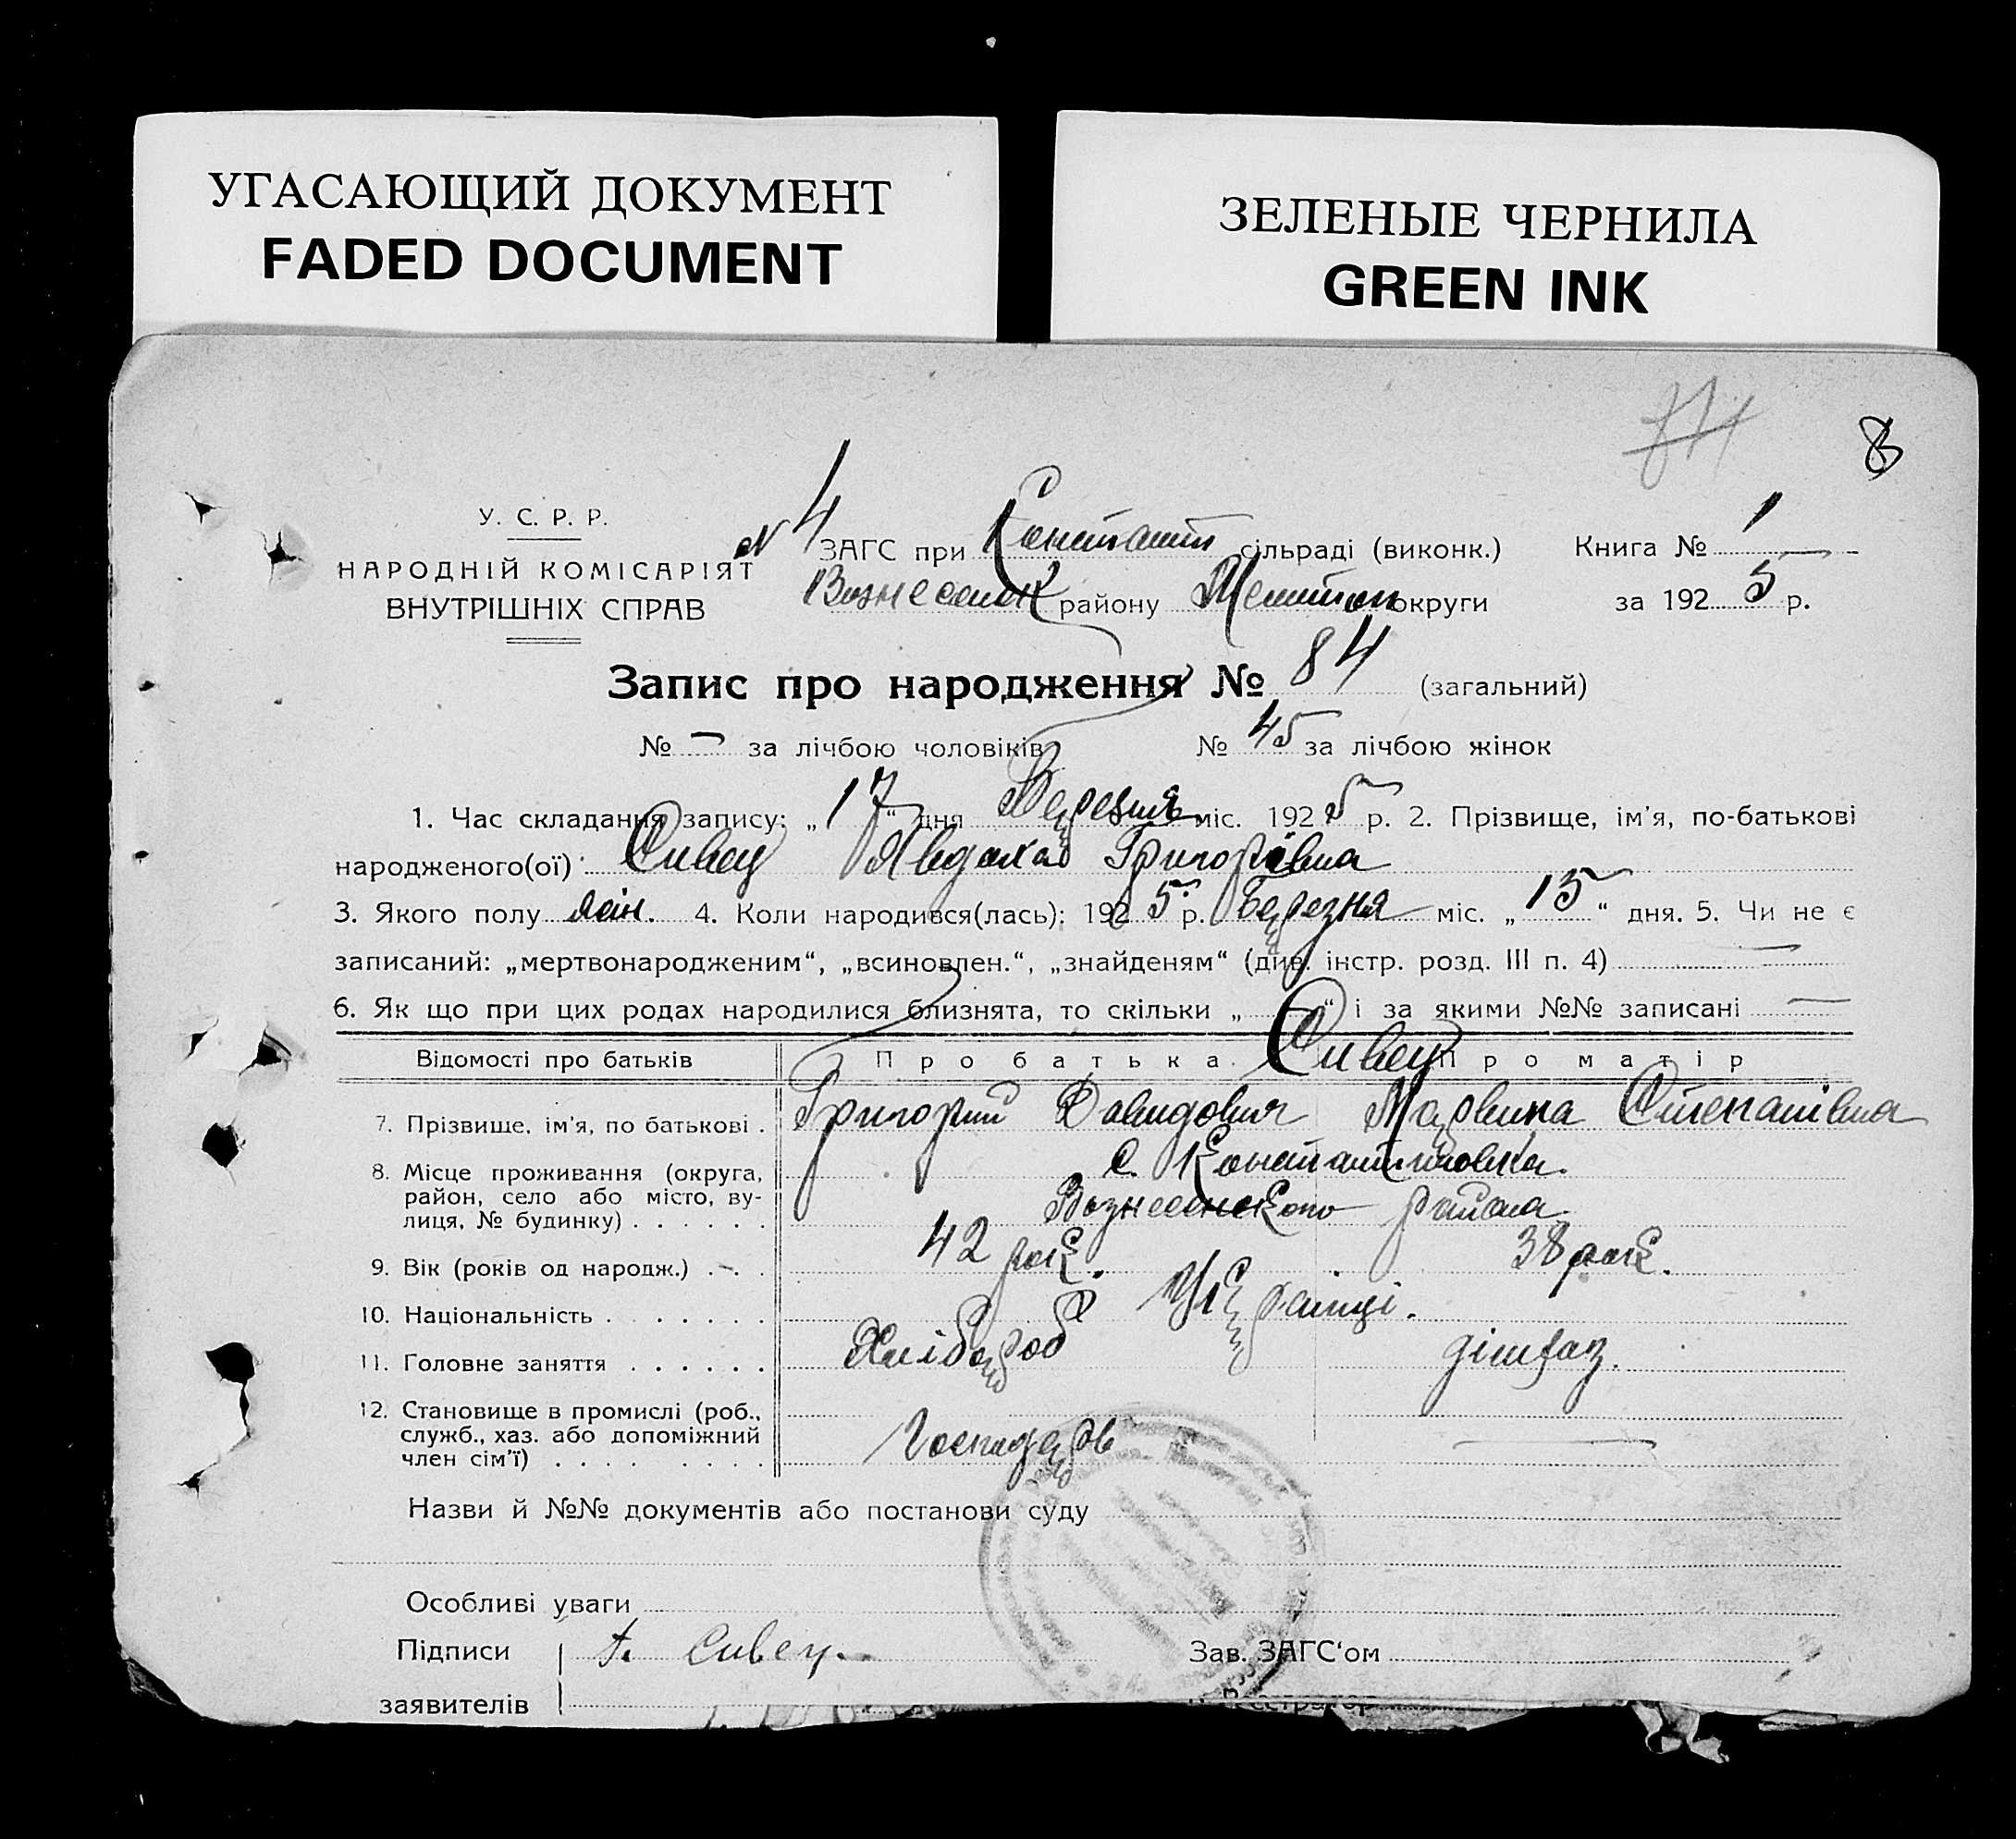 УГАСАЮЩИЙ ДОКУМЕНТ
FADED DOCUMENT
ЗЕЛЕНЫЕ ЧЕРНИЛА
GREEN INK
8
У. С. Р. Р.
НАРОДНІЙ КОМІСАРІЯТ
ВНУТРІШНІХ СПРАВ
N 4 ЗАГС при Констант сільраді (виконк.) Книга № 1
Вознесенск району округи за 1925 р.
Запис про народження № 84 (загальний)
№ — за лічбою чоловіків № 45 за лічбою жінок
1. Час складання запису: „17“ дня Березня міс. 1925 р. 2. Прізвище, ім'я, по-батькові
народженого(ої) Сивец Явдоха Григорівна
3. Якого полу жін. 4. Коли народився(лась): 1925 р. Березня міс. „15“ дня. 5. Чи не є
записаний: „мертвонародженим“, „всиновлен.“, „знайденям“ (див. інстр. розд. III п. 4) —
6. Як що при цих родах народилися близнята, то скільки „—“ і за якими №№ записані —
Відомості про батьків Про батька Про матір
Сивец
7. Прізвище, ім'я, по батькові . Григорий Давидович Марвина Степанівна
8. Місце проживання (округа, с. Константиновка.
район, село або місто, ву- Вознесенского района
лиця, № будинку) . . . . . .
9. Вік (років од народж.) . . . 42 рок. 38 рок.
10. Національність . . . . . . . Українці.
11. Головне заняття . . . . . . Хлібороб
12. Становище в промислі (роб.,
служб., хаз. або допоміжний Господарь —
член сім'ї) . . . . . . . .
Назви й №№ документів або постанови суду
Особливі уваги
Підписи Г. Сивец. Зав. ЗАГС‘ом
заявителів